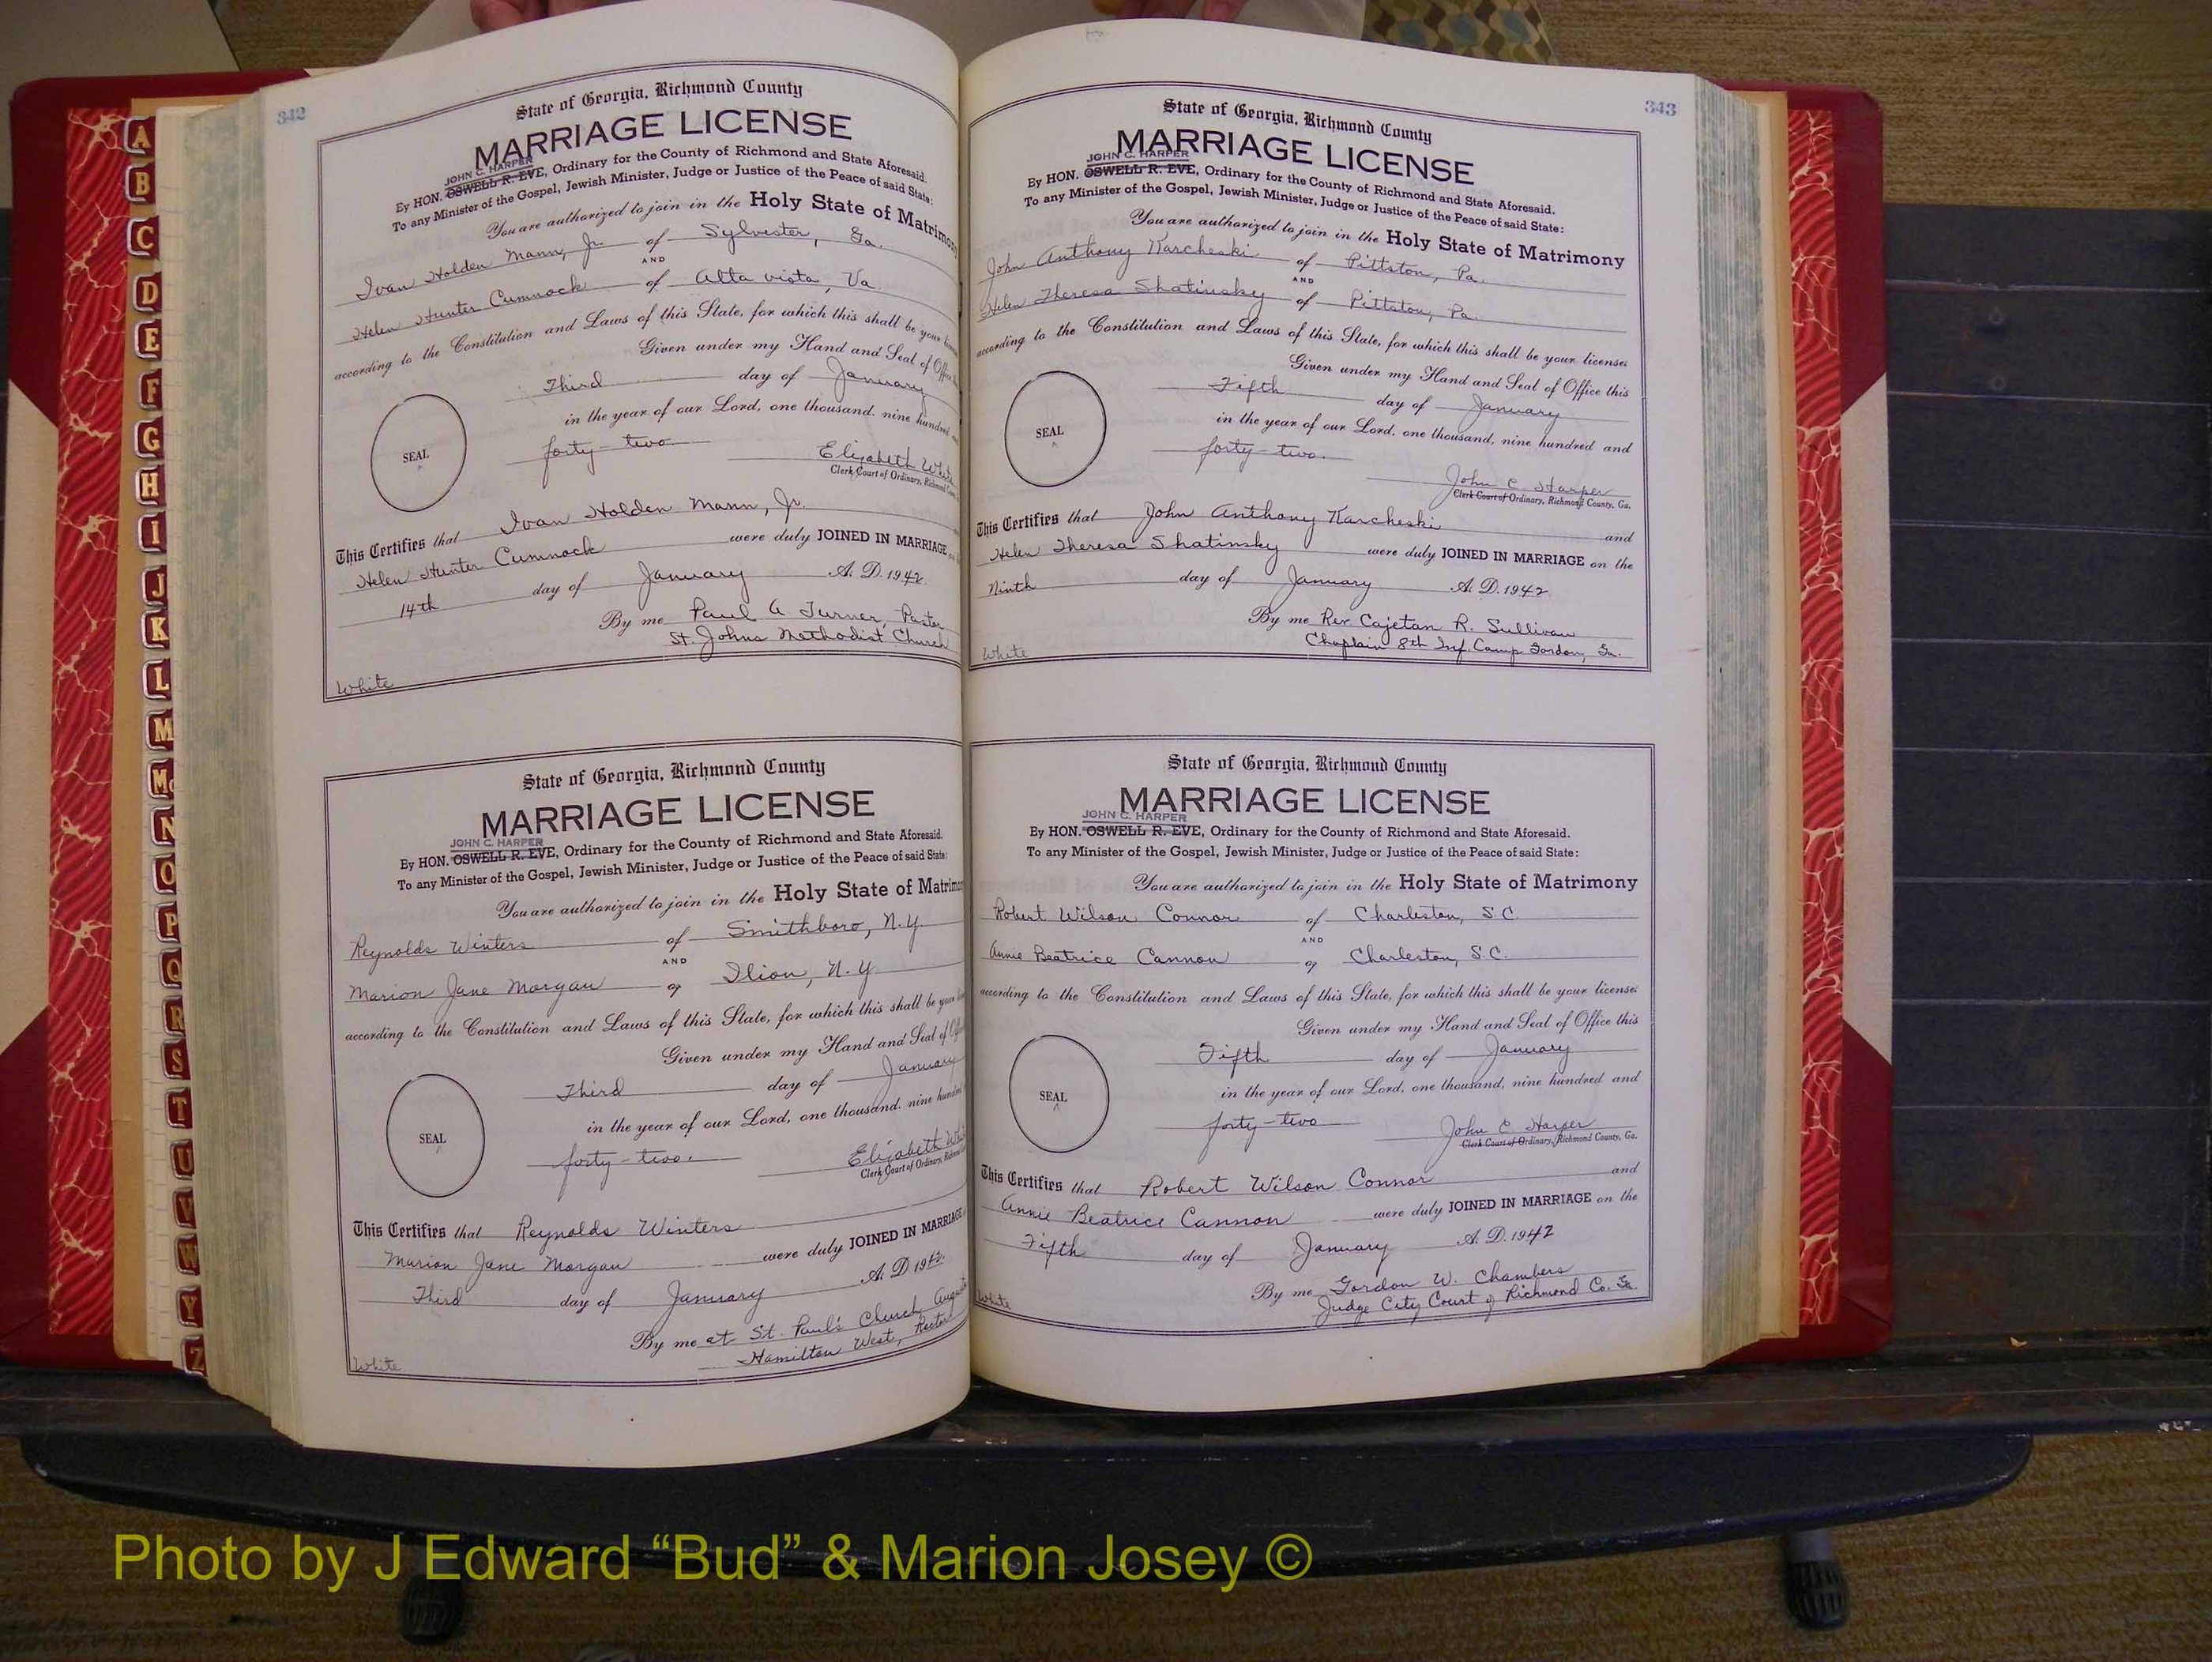 A
B
C
D
E
F
G
H
I
J
K
L
M
Mc
N
O
P
Q
R
S
T
U
V
W
Y
Z
342
State of Georgia, Richmond County
MARRIAGE LICENSE
JOHN C. HARPER
By HON. OSWELL R. EVE, Ordinary for the County of Richmond and State Aforesaid.
To any Minister of the Gospel, Jewish Minister, Judge or Justice of the Peace of said State:
You are authorized to join in the Holy State of Matrimony
Ivan Holden Mann, Jr. of Sylvester, Ga.
AND
Helen Hunter Cumnock of Alta vista, Va.
according to the Constitution and Laws of this State, for which this shall be your
Given under my Hand and Seal of Office
Third day of January
in the year of our Lord, one thousand, nine hundred
forty-two
SEAL
Elizabeth
Clerk Court of Ordinary, Richmond
This Certifies that Ivan Holden Mann, Jr.
Helen Hunter Cumnock were duly JOINED IN MARRIAGE
14th day of January A. D. 1942.
By me Paul A Turner, Pastor
St. Johns Methodist Church
White
State of Georgia, Richmond County
MARRIAGE LICENSE
JOHN C. HARPER
By HON. OSWELL R. EVE, Ordinary for the County of Richmond and State Aforesaid.
To any Minister of the Gospel, Jewish Minister, Judge or Justice of the Peace of said State:
You are authorized to join in the Holy State of Matrimo
Reynolds Winters of Smithboro, N.Y.
AND
Marion Jane Morgan of Ilion, N.Y.
according to the Constitution and Laws of this State, for which this shall be your
Given under my Hand and Seal of
Third day of January
in the year of our Lord, one thousand, nine hundred
forty-two.
SEAL
Elizabeth
Clerk Court of Ordinary, Richmond
This Certifies that Reynolds Winters
Marion Jane Morgan were duly JOINED IN MARRIAGE
Third day of January A. D 1942.
By me at St. Paul's Church, Augusta
Hamilton West, Rector
White
343
State of Georgia, Richmond County
MARRIAGE LICENSE
JOHN C. HARPER
By HON. OSWELL R. EVE, Ordinary for the County of Richmond and State Aforesaid.
To any Minister of the Gospel, Jewish Minister, Judge or Justice of the Peace of said State:
You are authorized to join in the Holy State of Matrimony
John Anthony Karcheski of Pittston, Pa.
AND
Helen Theresa Shatinsky of Pittston, Pa.
according to the Constitution and Laws of this State, for which this shall be your license:
Given under my Hand and Seal of Office this
Fifth day of January
in the year of our Lord, one thousand, nine hundred and
forty-two.
SEAL
John C. Harper
Clerk Court of Ordinary, Richmond County, Ga.
This Certifies that John Anthony Karcheski and
Helen Theresa Shatinsky were duly JOINED IN MARRIAGE on the
Ninth day of January A. D. 1942
By me Rev Cajetan R. Sullivan
Chaplain 8th Inf. Camp Gordon, Ga.
White
State of Georgia, Richmond County
MARRIAGE LICENSE
JOHN C. HARPER
By HON. OSWELL R. EVE, Ordinary for the County of Richmond and State Aforesaid.
To any Minister of the Gospel, Jewish Minister, Judge or Justice of the Peace of said State:
You are authorized to join in the Holy State of Matrimony
Robert Wilson Connor of Charleston, S.C.
AND
Annie Beatrice Cannon of Charleston, S.C.
according to the Constitution and Laws of this State, for which this shall be your license:
Given under my Hand and Seal of Office this
Fifth day of January
in the year of our Lord, one thousand, nine hundred and
forty-two
SEAL
John C. Harper
Clerk Court of Ordinary, Richmond County, Ga.
This Certifies that Robert Wilson Connor and
Annie Beatrice Cannon were duly JOINED IN MARRIAGE on the
Fifth day of January A. D. 1942
By me Gordon W. Chambers
Judge City Court of Richmond Co. Ga.
White
Photo by J Edward “Bud” & Marion Josey ©